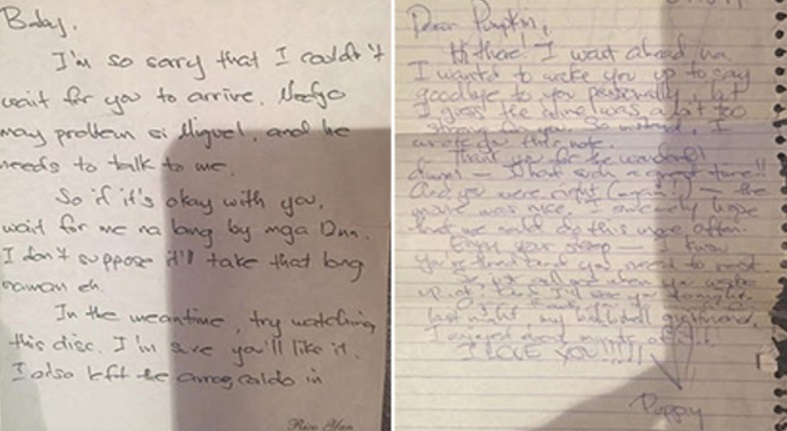 Baby,
I'm so sorry that I couldn't
wait for you to arrive.
may problem si Miguel, and he
needs to talk to me.
So if it's okay with you,
wait for me na lang by mga 2nn.
I don't suppose it'll take that long
naman eh.
In the meantime, try watching
this disc. I'm sure you'll like it.
I also left the arroz caldo in
Dear Pumpkin,
Hi there! I went ahead na.
I wanted to wake you up to say
goodbye to you personally, but
I guess the wine was a bit too
strong for you. So instead, I
wrote you this note.
Thank you for the wonderful
dinner — I had such a great time!!
And you were right (again!) — the
movie was nice. I sincerely hope
that we could do this more often.
Enjoy your sleep — I know
you're tired and you need to rest.
call me when you wake
up, ok?
last night, my
I enjoyed
I LOVE YOU!!!!!
Poppy